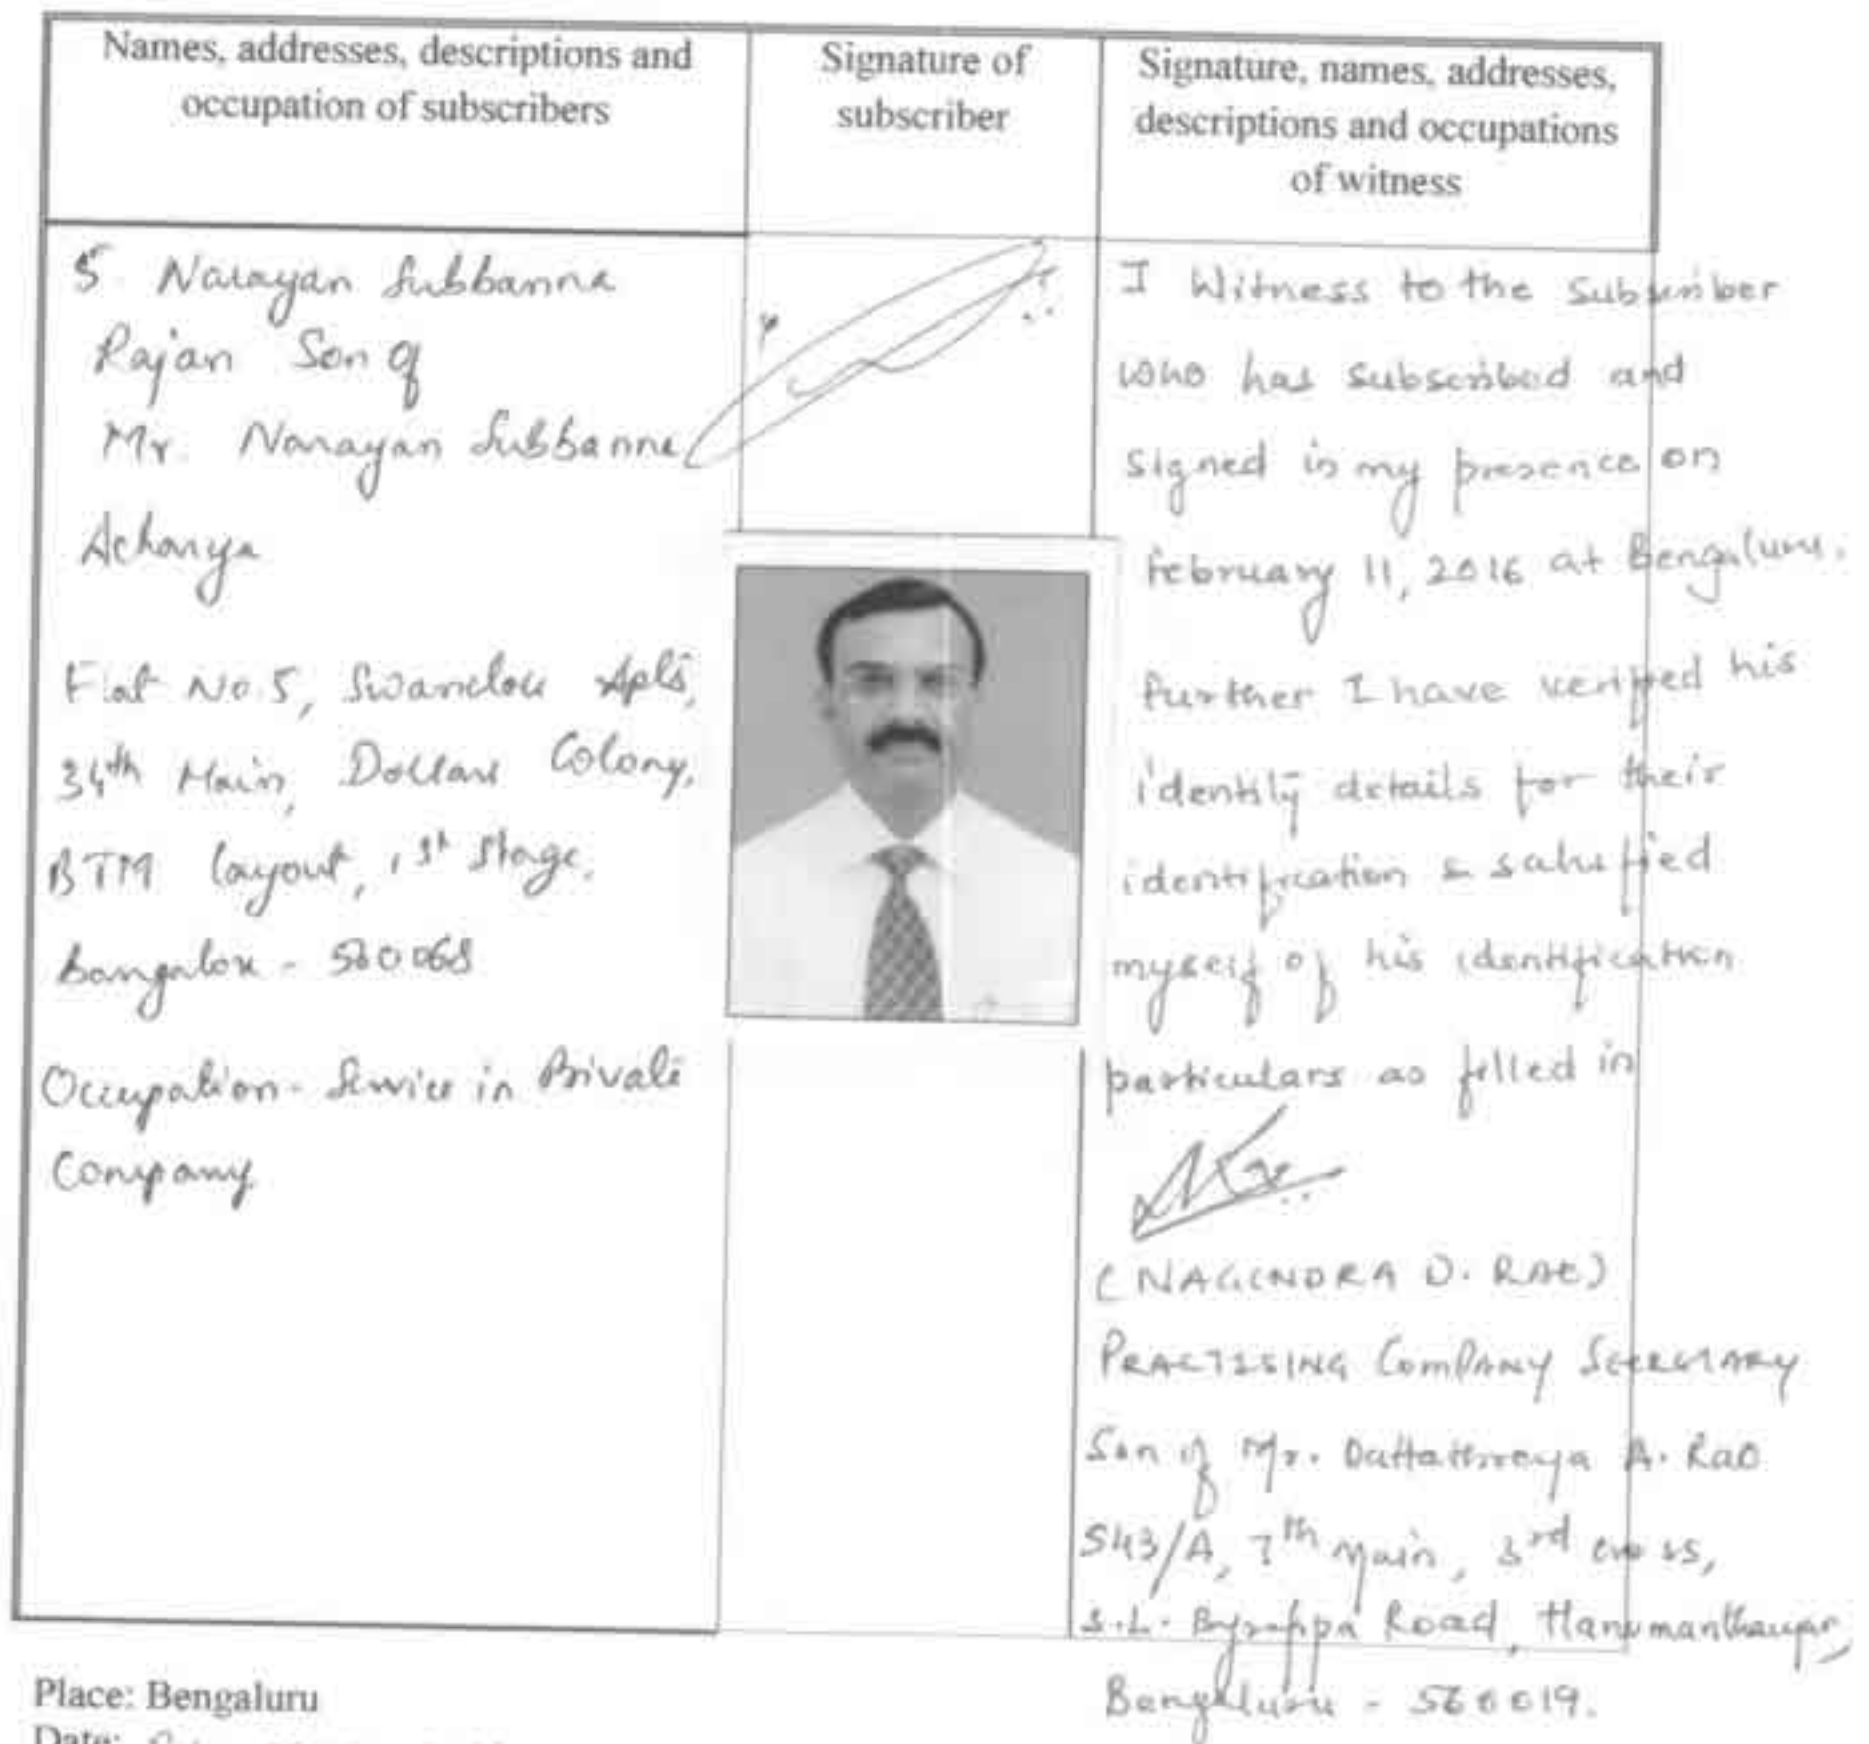 Names, addresses, descriptions and
occupation of subscribers
Signature of
subscriber
Signature, names, addresses,
descriptions and occupations
of witness
5 Narayan Subbanna
Rajan Son of
Mr. Narayan Subbanna
Acharya
Flat No. 5, Apts,
34th Main, Dollars Colony,
BTM layout, 1st Stage,
Bangalore - 560068
Occupation - Service in Private
Company
I Witness to the Subscriber
who has subscribed and
signed in my presence on
February 11, 2016 at Bengaluru.
Further I have verified his
identity details for their
identification & satisfied
myself of his identification
particulars as filled in
(NAGENDRA D. RAO)
PRACTISING COMPANY SECRETARY
Son of Mr. Dattathreya A. Rao
543/A, 7th Main, 3rd cross,
S.L. Byrappa Road, Hanumanthanagar,
Bengaluru - 560019.
Place: Bengaluru
Date: